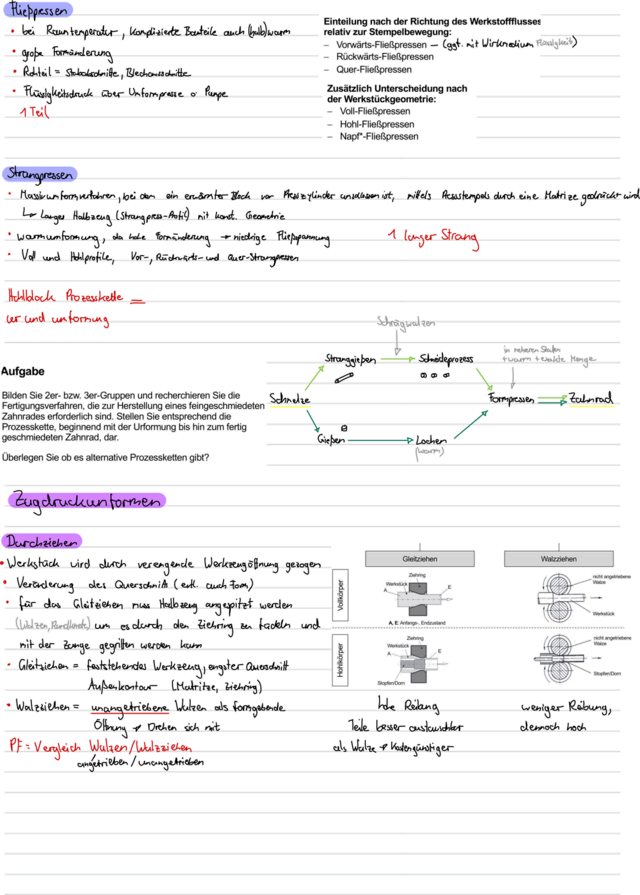 Fließpressen
• bei Raumtemperatur, komplizierte Bauteile auch (halb)warm
• große Formänderung
• Rohteil = Stababschnitte, Blechausschnitte
• Flüssigkeitsdruck über Umformpresse o. Pumpe
1 Teil
Einteilung nach der Richtung des Werkstoffflusses
relativ zur Stempelbewegung:
– Vorwärts-Fließpressen – (ggf. mit Wirkmedium Flüssigkeit)
– Rückwärts-Fließpressen
– Quer-Fließpressen
Zusätzlich Unterscheidung nach
der Werkstückgeometrie:
– Voll-Fließpressen
– Hohl-Fließpressen
– Napf*-Fließpressen
Strangpressen
• Massivumformverfahren, bei dem ein erwärmter Block von Presszylinder umschlossen ist, mittels Pressstempels durch eine Matrize gedrückt wird
↳ langes Halbzeug (Strangpress-Profil) mit konst. Geometrie
• Warmumformung, da hohe Formänderung → niedrige Fließspannung
1 langer Strang
• Voll und Hohlprofile, Vor-, Rückwärts- und Quer-Strangpressen
Hohlblock Prozesskette
ur und umformung
Schrägwalzen
in mehreren Stufen
+ warm + exakte Menge
Stranggießen → Schneideprozess
Schmelze
Formpressen → Zahnrad
Gießen → Lochen
(warm)
Aufgabe
Bilden Sie 2er- bzw. 3er-Gruppen und recherchieren Sie die
Fertigungsverfahren, die zur Herstellung eines feingeschmiedeten
Zahnrades erforderlich sind. Stellen Sie entsprechend die
Prozesskette, beginnend mit der Urformung bis hin zum fertig
geschmiedeten Zahnrad, dar.
Überlegen Sie ob es alternative Prozessketten gibt?
Zugdruckumformen
Durchziehen
• Werkstück wird durch verengende Werkzeugöffnung gezogen
• Veränderung des Querschnitt (evtl. auch Form)
• für das Gleitziehen muss Halbzeug angespitzt werden
(Walzen, Rundkneten) um es durch den Ziehring zu fädeln und
mit der Zange gegriffen werden kann
• Gleitziehen = feststehendes Werkzeug, engster Querschnitt
Außenkontour (Matritze, Ziehring)
• Walzziehen = unangetriebene Walzen als formgebende
Öffnung → Drehen sich mit
PF = Vergleich Walzen/Walzziehen
angetrieben/unangetrieben
Gleitziehen
Walzziehen
Vollkörper
Ziehring
Werkstück
A
E
A, E: Anfangs-, Endzustand
nicht angetriebene
Walze
Werkstück
Hohlkörper
Ziehring
Werkstück
A
E
Stopfen/Dorn
nicht angetriebene
Walze
Stopfen/Dorn
hohe Reibung
Teile besser austauschbar
als Walze → kostengünstiger
weniger Reibung,
dennoch hoch